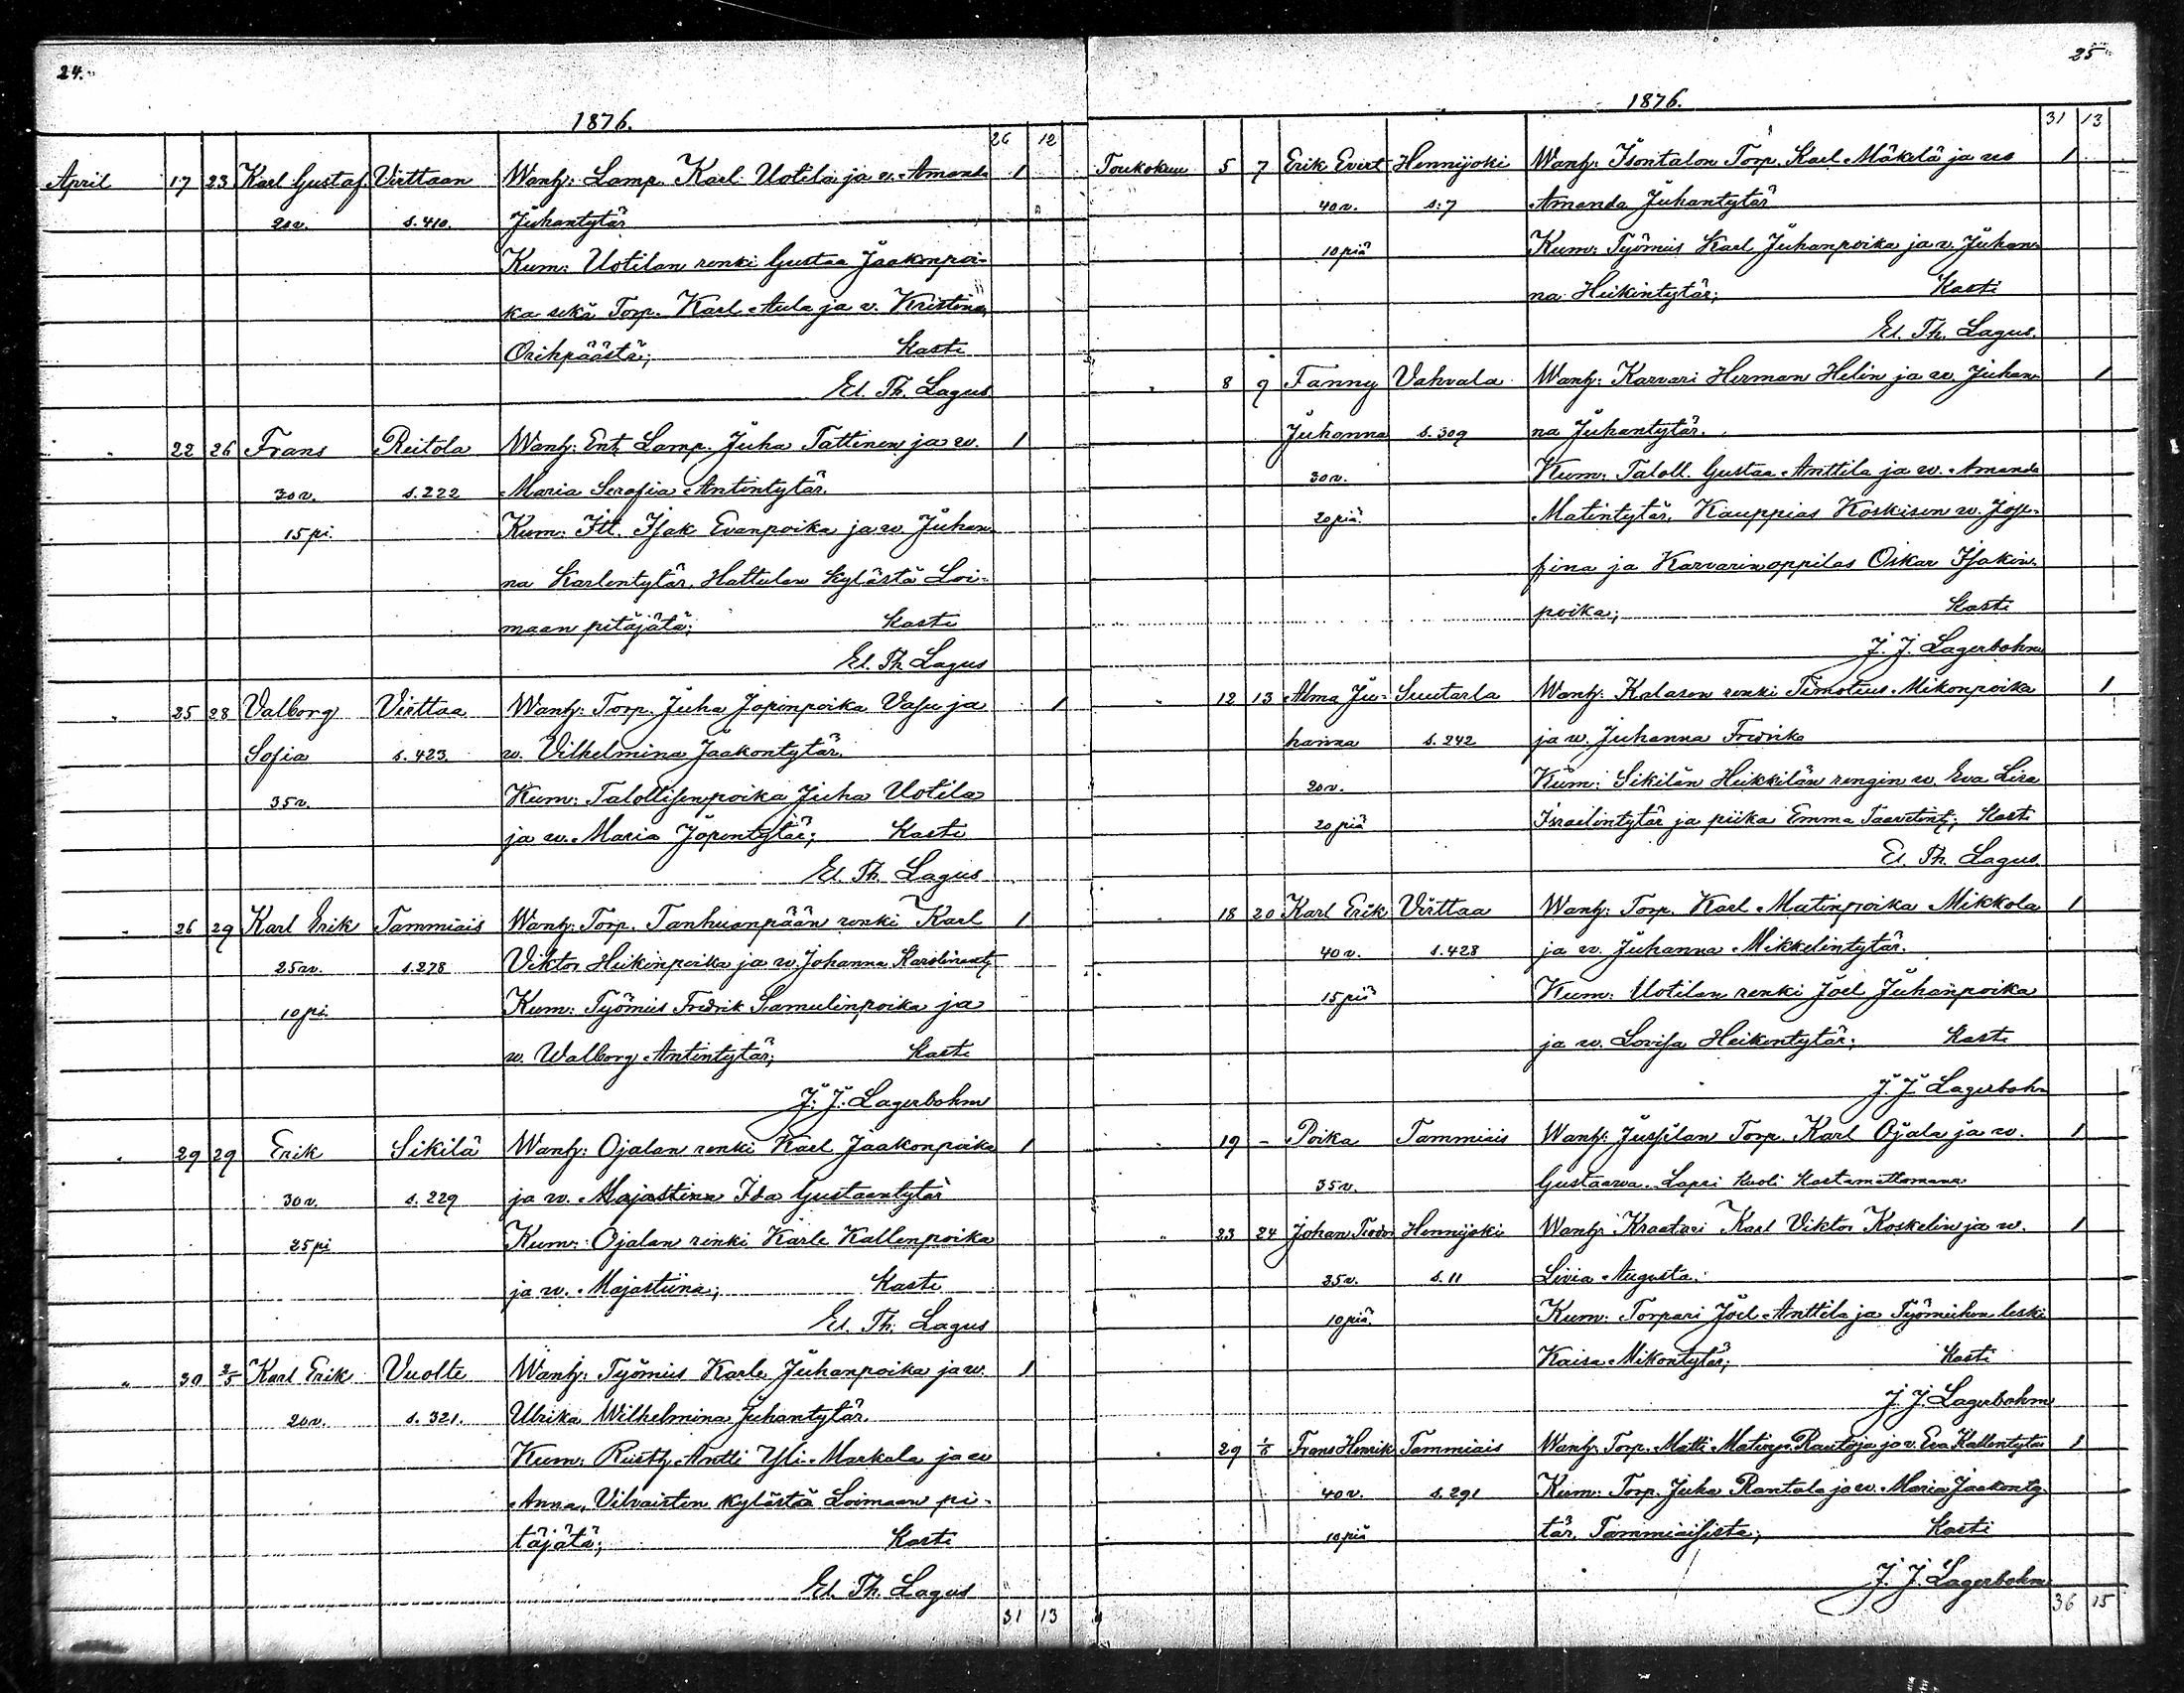 24.
1876.
26 12
April 17 23 Karl Gustaf Virttaan Wanh: Lamp. Karl Uotila ja v. Amanda 1
20 v. s. 410. Juhantytär
Kum: Uotilan renki Gustaa Jaakonpoi-
ka sekä Torp. Karl Aula ja v. Kristina
Orihpäästä; Kasti
El. Th. Lagus
" 22 26 Frans Reitola Wanh: Ent. Lamp. Juha Tattinen ja w. 1
30 v. s. 222 Maria Serafia Antintytär.
15 pi. Kum: Itl. Isak Evanpoika ja w. Juhan-
na Karlentytär, Hattulan kylästä Loi-
maan pitäjätä; Kasti
El. Th Lagus
" 25 28 Valborg Virttaa Wanh: Torp. Juha Jopinpoika Vasu ja 1
Sofia s. 423. w. Vilhelmina Jaakontytär.
35 v. Kum: Talollisenpoika Juha Uotila
ja w. Maria Jopintytär; Kasti
El. Th. Lagus
" 26 29 Karl Erik Tammiais Wanh: Torp. Tanhuanpään renki Karl 1
25 v. s. 278 Viktor Heikinpoika ja w. Johanna Karolinanty
10 pi. Kum: Työmies Fredrik Samulinpoika ja
w. Walborg Antintytär; Kasti
J. J. Lagerbohm
" 29 29 Erik Sikilä Wanh: Ojalan renki Karl Jaakonpoika 1
30 v. s. 229 ja w. Majastina Ida Gustaantytär
25 pi Kum: Ojalan renki Karle Kallenpoika
ja w. Majastiina; Kasti
El. Th. Lagus
" 30 2/5 Karl Erik Vuolte Wanh: Työmies Karle Juhanpoika ja w. 1
20 v. s. 321. Ulrika Wilhelmina Juhantytär.
Kum: Rusth. Antti Yli-Markala ja w
Anna, Vilvaisten kylästää Loimaan pi-
täjätä; Kasti
El. Th. Lagus
31 13
25
1876.
31 13
Toukokuu 5 7 Erik Evert Hennijoki Wanh: Isontalon Torp. Karl Mäkelä ja w 1
40 v. s. 7 Amanda Juhantytär
10 piä Kum: Työmies Karl Juhanpoika ja v. Juhan-
na Heikintytär; Kasti
El. Th. Lagus.
" 8 9 Fanny Vahvala Wanh: Karvari Herman Helin ja w. Juhan- 1
Juhanna s. 309 na Juhantytär.
30 v. Kum: Taloll. Gustaa Anttila ja w. Amanda
20 piä. Matintytär, Kauppias Koskisen w. Jose-
fina ja Karvarinoppilas Oskar Isakin-
poika; Kasti
J. J. Lagerbohm
" 12 13 Alma Ju- Suutarla Wanh: Kalason renki Timoteus Mikonpoika 1
hanna s. 242 ja w. Juhanna Fredrika
20 v. Kum: Sikilän Heikkilän rengin w. Eva Lisa
20 piä Israelintytär ja piika Emma Taavetint; Kasti
El. Th. Lagus.
" 18 20 Karl Erik Virttaa Wanh: Torp. Karl Matinpoika Mikkola 1
40 v. s. 428 ja w. Juhanna Mikkelintytär.
15 piä Kum: Uotilan renki Joel Juhanpoika
ja w. Lovisa Heikentytär; Kasti
J. J. Lagerbohm
" 19 - Poika Tammiais Wanh: Jussilan Torp. Karl Ojala ja w. 1
35 v. Gustaava. Lapsi kuoli kastamattomana
" 23 24 Johan Fredr Hennijoki Wanh: Kraatari Karl Viktor Koskelin ja w. 1
35 v. s. 11 Livia Augusta.
10 piä. Kum: Torpari Joel Anttila ja Työmiehen leski
Kaisa Mikontytär; Kasti
J. J. Lagerbohm
" 29 1/6 Frans Henrik Tammiais Wanh: Torp. Matti Matinp. Rautoja ja v. Eva Kallentytär 1
40 v. s. 291 Kum: Torp. Juha Rantala ja w. Maria Jaakonty-
10 piä tär, Tammiaisista; Kasti
J. J. Lagerbohm
36 15